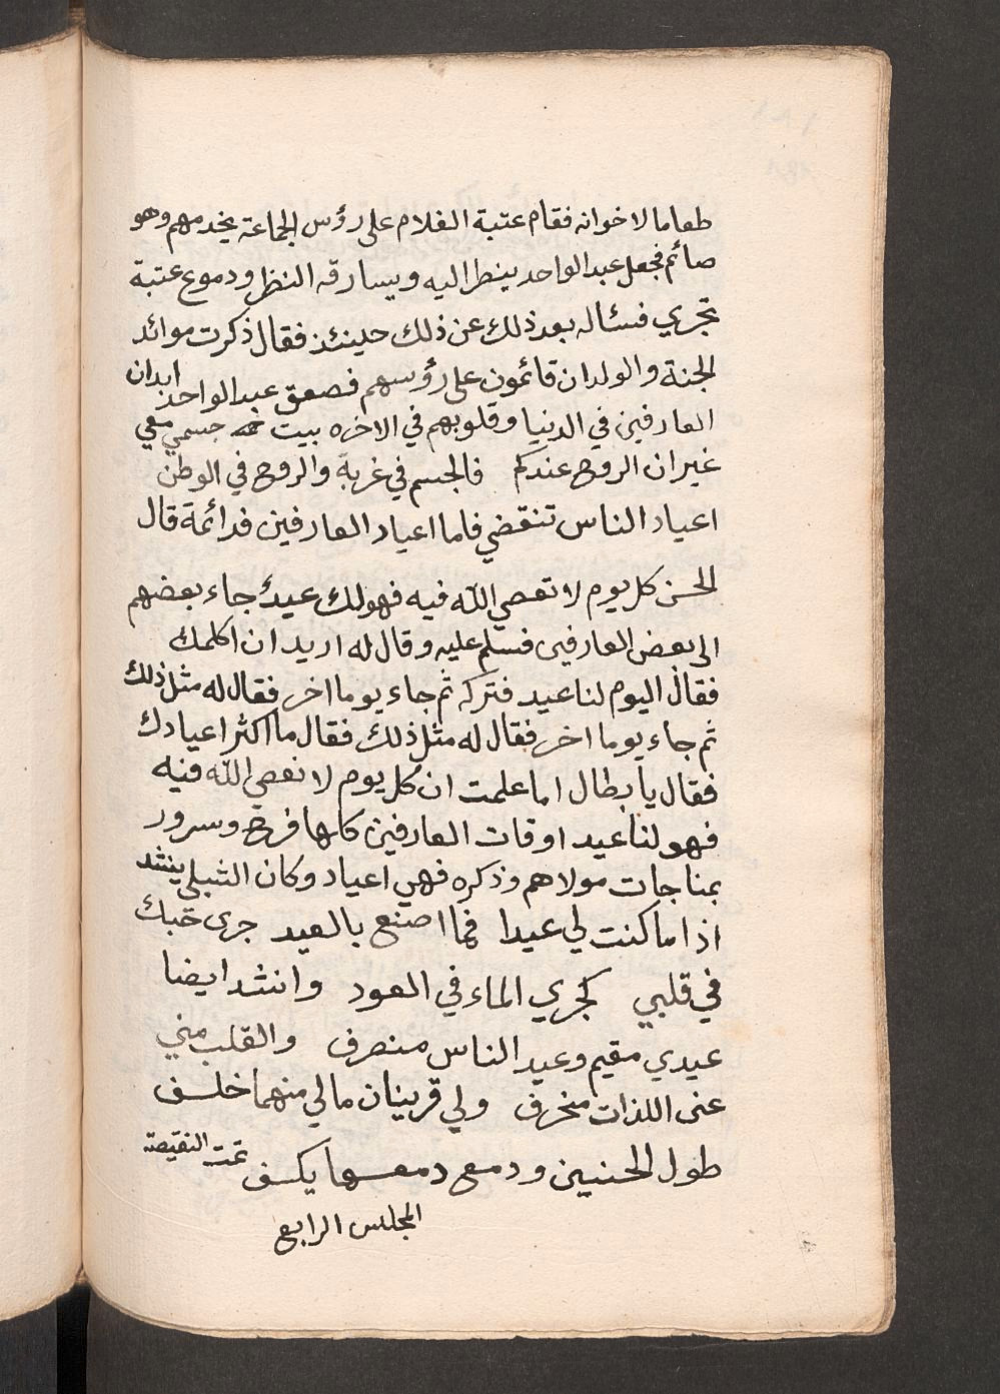 طعاما لاخوانه فقام عتبة الغلام على رؤس الجماعة يخدمهم وهو
صائم فجعل عبد الواحد ينظر اليه ويسارقه النظر ودموع عتبة
تجري فسئاله بعد ذلك عن ذلك حينئذ فقال ذكرت موائد
الجنة والولدان قائمون على رؤسهم فصعق عبد الواحد ابدان
العارفين في الدنيا وقلوبهم في الاخره بيت جسمي معي
غير ان الروح عندكم فالجسم في غربة والروح في الوطن
اعياد الناس تنقضي فاما اعياد العارفين فدائمة قال
الحسن كل يوم لا تعصي الله فيه فهو لك عيد جاء بعضهم
الى بعض العارفين فسلم عليه وقال له اريد ان اكلمك
فقال اليوم لنا عيد فتركه ثم جاء يوما اخر فقال له مثل ذلك
ثم جاء يوما اخر فقال له مثل ذلك فقال ما اكثر اعيادك
فقال يا بطال اما علمت ان كل يوم لا نعصي الله فيه
فهو لنا عيد اوقات العارفين كلها فرح وسرور
بمناجات مولاهم وذكره فهي اعياد وكان الشبلي ينشد
اذا ما كنت لي عيدا فما اصنع بالعيد جرى حبك
في قلبي كجري الماء في العود وانشد ايضا
عيدي مقيم وعيد الناس منصرف والقلب مني
عن اللذات منحرف ولي قرينان مالي منهما خلف
طول الحنين ودمع دمعها يكف تمت
المجلس الرابع